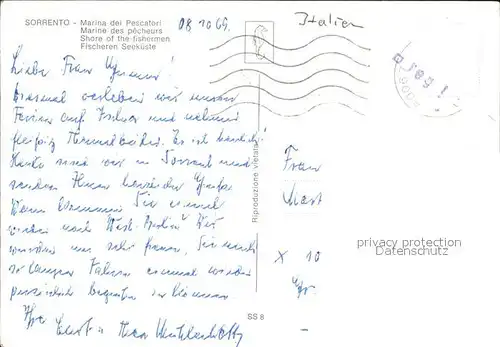 SORRENTO - Marina dei Pescatori
Marine des pêcheurs
Shore of the fishermen
Fischeren Seeküste
08 10 69.
Italien
Liebe Frau
diesmal verleben wir unseren
Ferien auf Ischia und nehmen
fleißig Thermalbäder. Es ist herrlich!
Heute sind wir in Sorrent und
senden Ihnen herzliche Grüße.
Wann kommen Sie einmal
wieder nach West-Berlin? Wir
würden uns sehr freuen, Sie nach
so langen Jahren einmal wieder
persönlich begrüßen zu können
Ihre
Riproduzione vietata
SS 8
Frau
X 10
privacy protection
Datenschutz